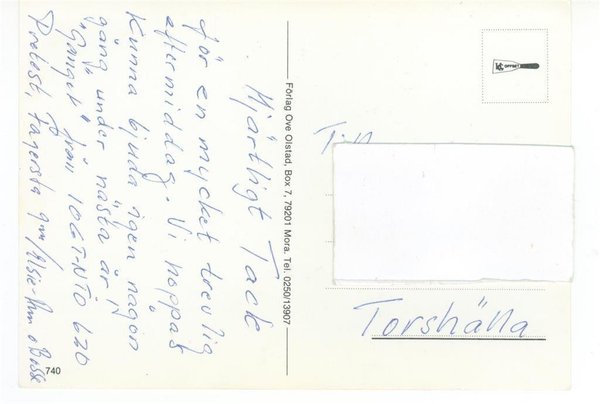 Hjärtligt Tack
för en mycket trevlig
eftermiddag. Vi hoppas
Kunna bjuda igen någon
gång under nästa år!
"Gänget" från IOGT-NTO 620
Protest, Fagersta gm/Elsie-Ann o Bosse
740
Förlag Ove Olstad, Box 7, 79201 Mora. Tel. 0250/13907
OFFSET
Till
Torshälla